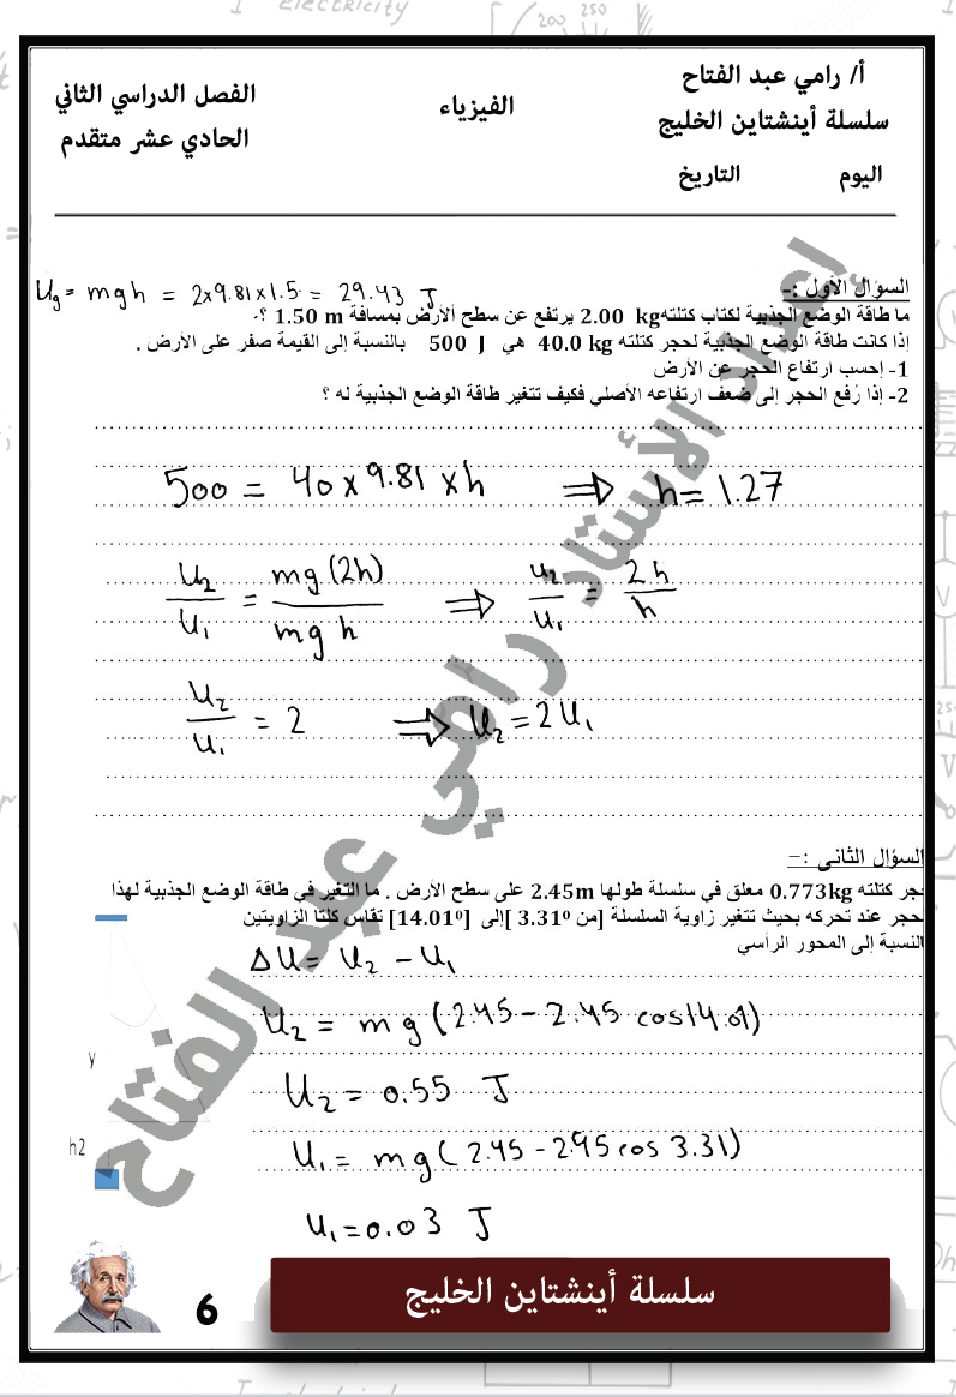 أ/ رامي عبد الفتاح
سلسلة أينشتاين الخليج
الفيزياء
الفصل الدراسي الثاني
الحادي عشر متقدم
اليوم
التاريخ
السؤال الأول :-
Ug = mgh = 2x9.81x1.5 = 29.43 J
ما طاقة الوضع الجذبية لكتاب كتلته 2.00 kg يرتفع عن سطح ألأرض بمسافة 1.50 m ؟
إذا كانت طاقة الوضع الجذبية لحجر كتلته 40.0 kg هي 500 J بالنسبة إلى القيمة صفر على الأرض .
1- إحسب ارتفاع الحجر عن الأرض
2- إذا رُفع الحجر إلى ضعف ارتفاعه الأصلي فكيف تتغير طاقة الوضع الجذبية له ؟
500 = 40 x 9.81 x h ⇒ h = 1.27
U2/U1 = mg(2h)/mgh ⇒ U2/U1 = 2h/h
U2/U1 = 2 ⇒ U2 = 2U1
السؤال الثاني :-
جر كتلته 0.773kg معلق في سلسلة طولها 2.45m على سطح الأرض . ما التغير في طاقة الوضع الجذبية لهذا
حجر عند تحركه بحيث تتغير زاوية السلسلة [من 3.31⁰ ]إلى [14.01⁰] تقاس كلتا الزاويتين
النسبة إلى المحور الرأسي
ΔU = U2 - U1
U2 = mg(2.45 - 2.45 cos14.01)
y
U2 = 0.55 J
h2
U1 = mg(2.45 - 2.45 cos 3.31)
U1 = 0.03 J
سلسلة أينشتاين الخليج
6
إعداد الأستاذ رامي عبد الفتاح